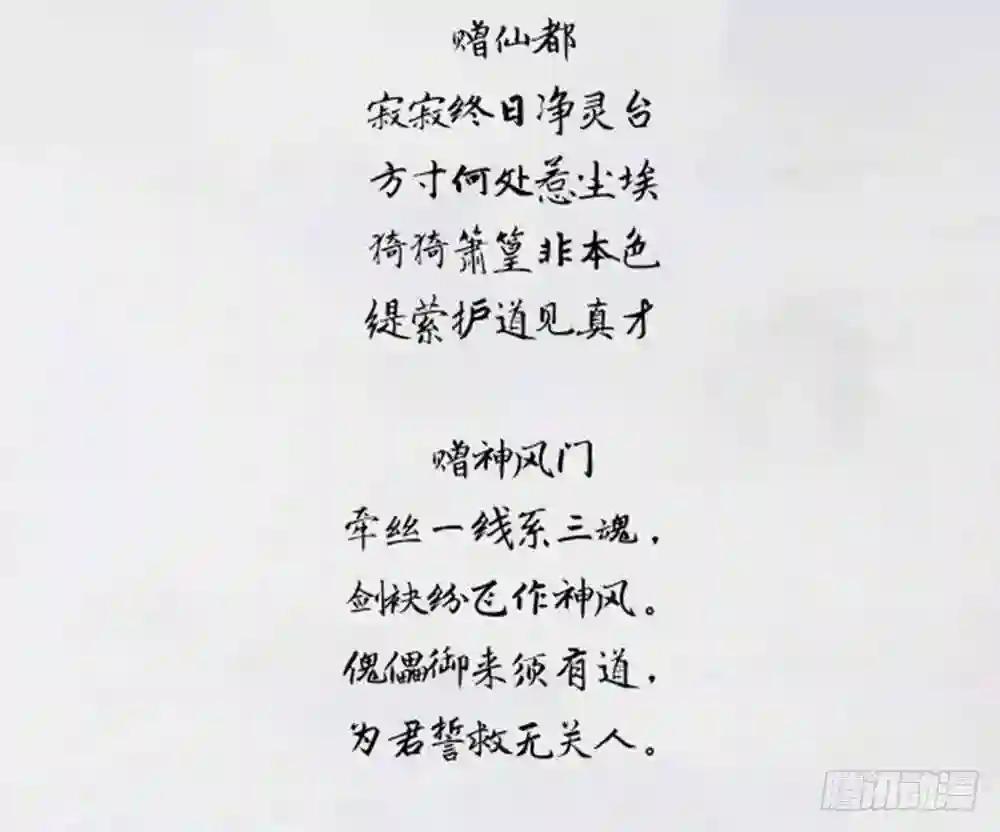 赠仙都
寂寂终日净灵台
方寸何处惹尘埃
猗猗箫篁非本色
缇萦护道见真才
赠神风门
牵丝一线系三魂，
剑袂纷飞作神风。
傀儡御来须有道，
为君誓救无关人。
腾讯动漫